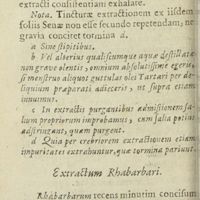 extracti consistentiam exhalare.
Nota. Tincturæ extractionem ex iisdem
foliis Senæ non esse secundo repetendam, ne
gravia conciret tormina d.
a Sine stipitibus.
b Vel alterius qualiscumque aquæ destillatæ
non grave olentis, omnium absolutissime egeris,
si menstruo aliquot guttulas olei Tartari per de-
liquium præparati adieceris, ut supra etiam
innuimus.
c In extractis purgantibus admissionem sa-
lium propriorum improbamus, cum salsa potius
adstringant, quam purgent.
d Quia per crebriorem extractionem etiam
impuritates extrahuntur, quæ tormina pariunt.
Extractum Rhabarbari.
Rhabarbarum recens minutim concisum